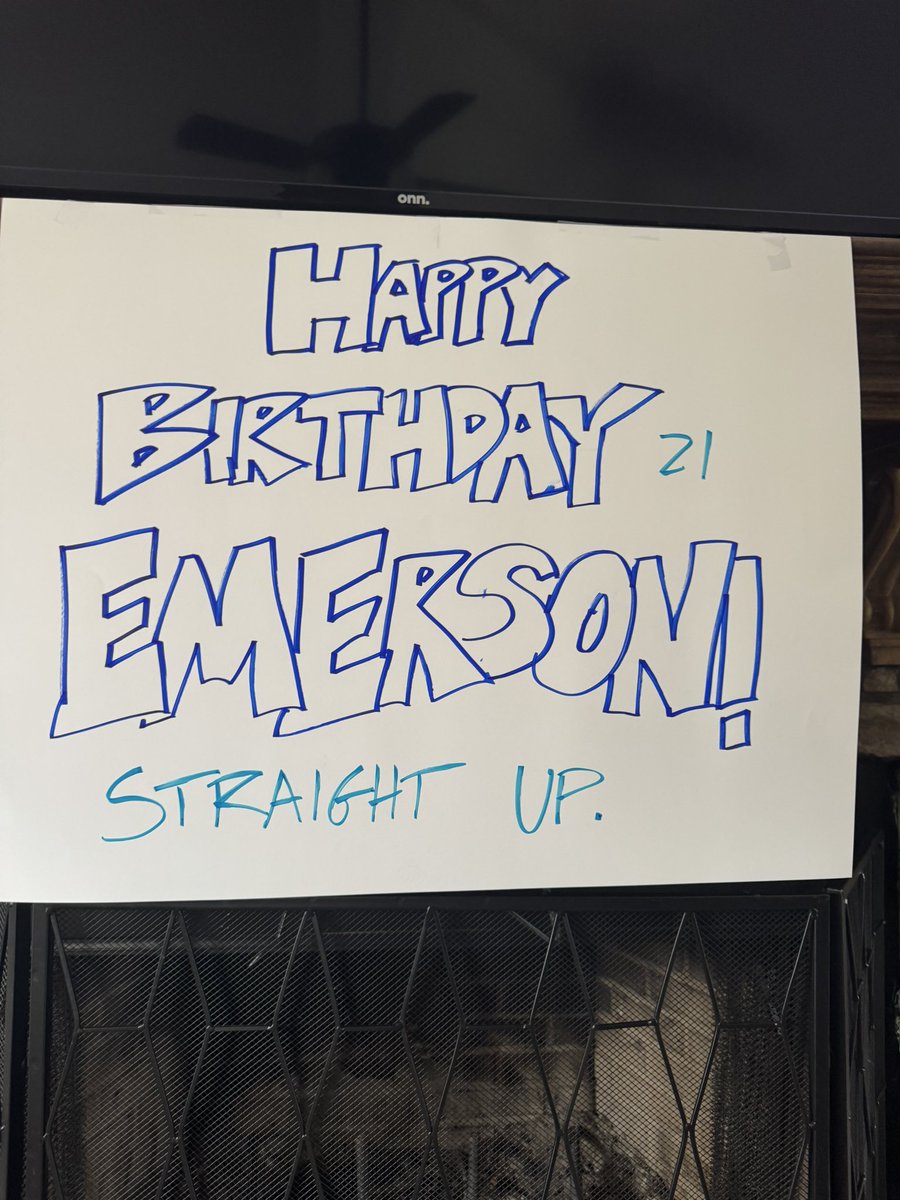 onn.
HAPPY
BIRTHDAY 21
EMERSON!
STRAIGHT UP.